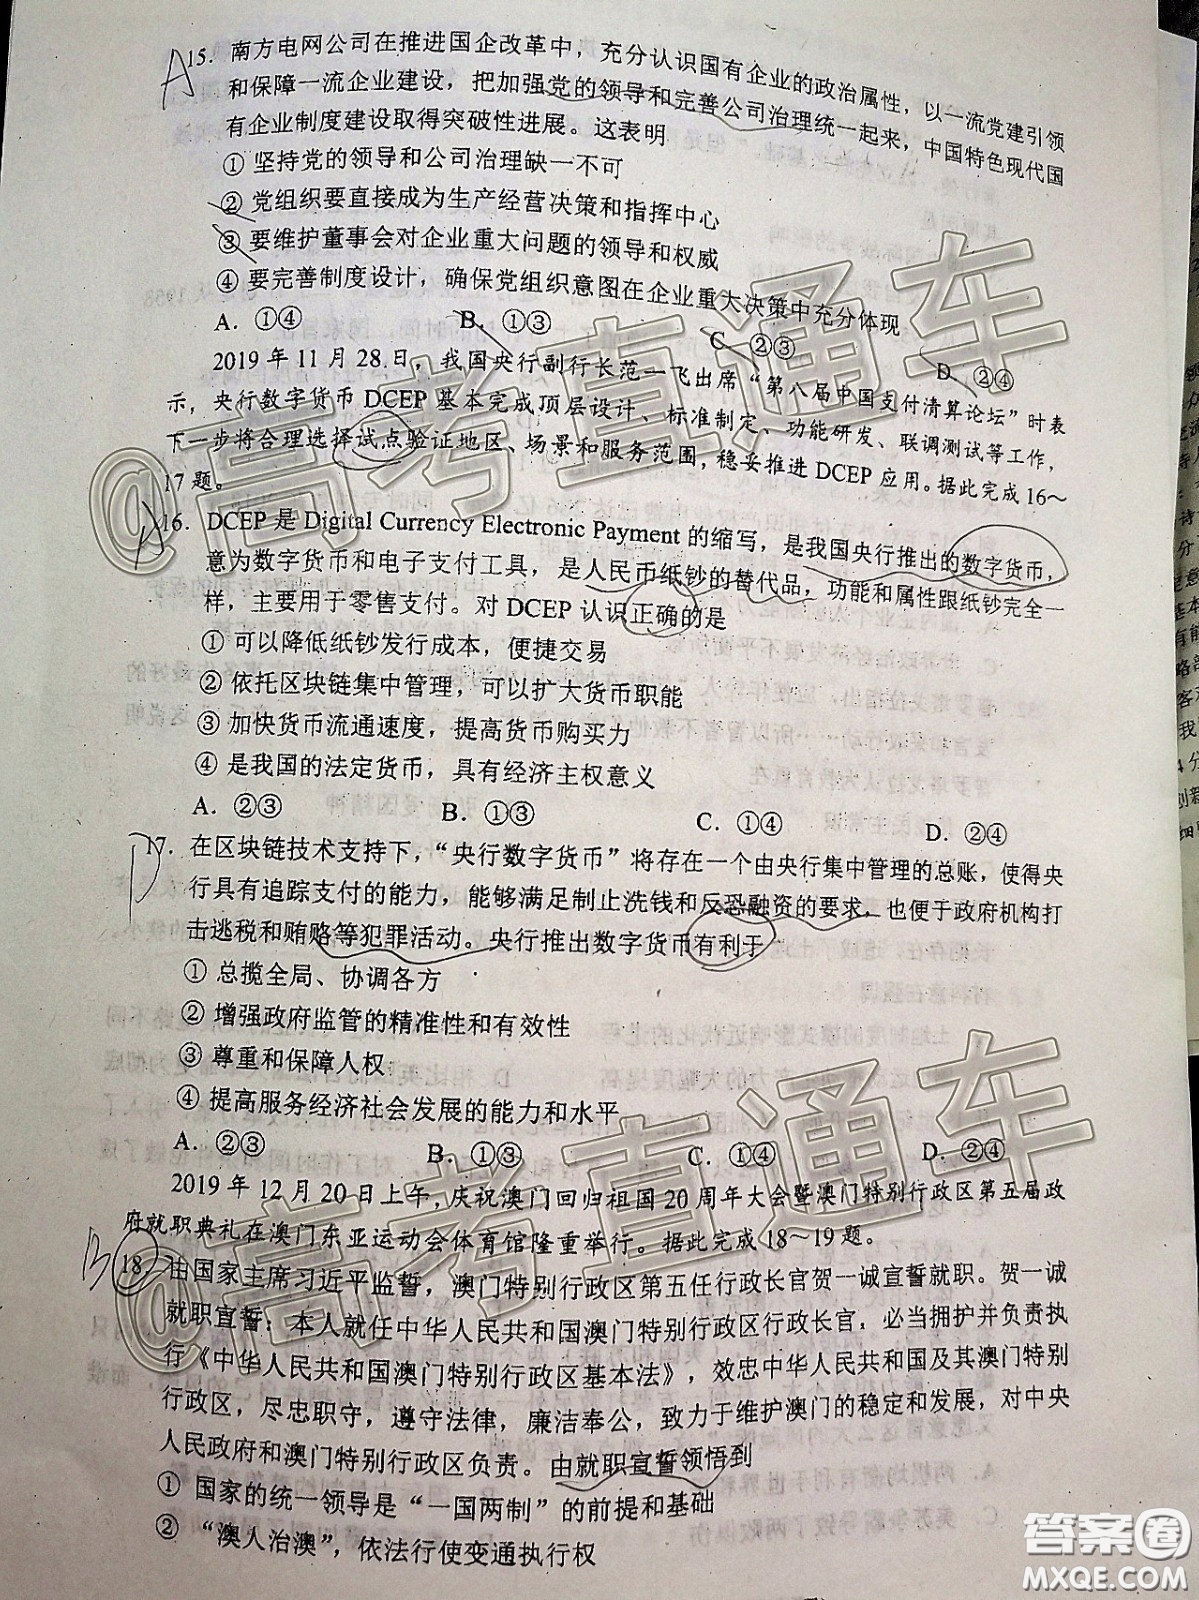 A15. 南方电网公司在推进国企改革中，充分认识国有企业的政治属性，以一流党建引领
和保障一流企业建设，把加强党的领导和完善公司治理统一起来，中国特色现代国
有企业制度建设取得突破性进展。这表明
① 坚持党的领导和公司治理缺一不可
② 党组织要直接成为生产经营决策和指挥中心
③ 要维护董事会对企业重大问题的领导和权威
④ 要完善制度设计，确保党组织意图在企业重大决策中充分体现
A. ①④ B. ①③ C. ②③ D. ②④
2019 年 11 月 28 日，我国央行副行长范一飞出席“第八届中国支付清算论坛”时表
示，央行数字货币 DCEP 基本完成顶层设计、标准制定、功能研发、联调测试等工作，
下一步将合理选择试点验证地区、场景和服务范围，稳妥推进 DCEP 应用。据此完成 16～
17 题。
A16. DCEP 是 Digital Currency Electronic Payment 的缩写，是我国央行推出的数字货币，
意为数字货币和电子支付工具，是人民币纸钞的替代品，功能和属性跟纸钞完全一
样，主要用于零售支付。对 DCEP 认识正确的是
① 可以降低纸钞发行成本，便捷交易
② 依托区块链集中管理，可以扩大货币职能
③ 加快货币流通速度，提高货币购买力
④ 是我国的法定货币，具有经济主权意义
A. ②③ B. ①③ C. ①④ D. ②④
D17. 在区块链技术支持下，“央行数字货币”将存在一个由央行集中管理的总账，使得央
行具有追踪支付的能力，能够满足制止洗钱和反恐融资的要求，也便于政府机构打
击逃税和贿赂等犯罪活动。央行推出数字货币有利于
① 总揽全局、协调各方
② 增强政府监管的精准性和有效性
③ 尊重和保障人权
④ 提高服务经济社会发展的能力和水平
A. ②③ B. ①③ C. ①④ D. ②④
2019 年 12 月 20 日上午，庆祝澳门回归祖国 20 周年大会暨澳门特别行政区第五届政
府就职典礼在澳门东亚运动会体育馆隆重举行。据此完成 18～19 题。
B18. 由国家主席习近平监誓，澳门特别行政区第五任行政长官贺一诚宣誓就职。贺一诚
就职宣誓：本人就任中华人民共和国澳门特别行政区行政长官，必当拥护并负责执
行《中华人民共和国澳门特别行政区基本法》，效忠中华人民共和国及其澳门特别
行政区，尽忠职守，遵守法律，廉洁奉公，致力于维护澳门的稳定和发展，对中央
人民政府和澳门特别行政区负责。由就职宣誓领悟到
① 国家的统一领导是“一国两制”的前提和基础
② “澳人治澳”，依法行使变通执行权
@高考直通车
@高考直通车
答案圈
MXQE.COM